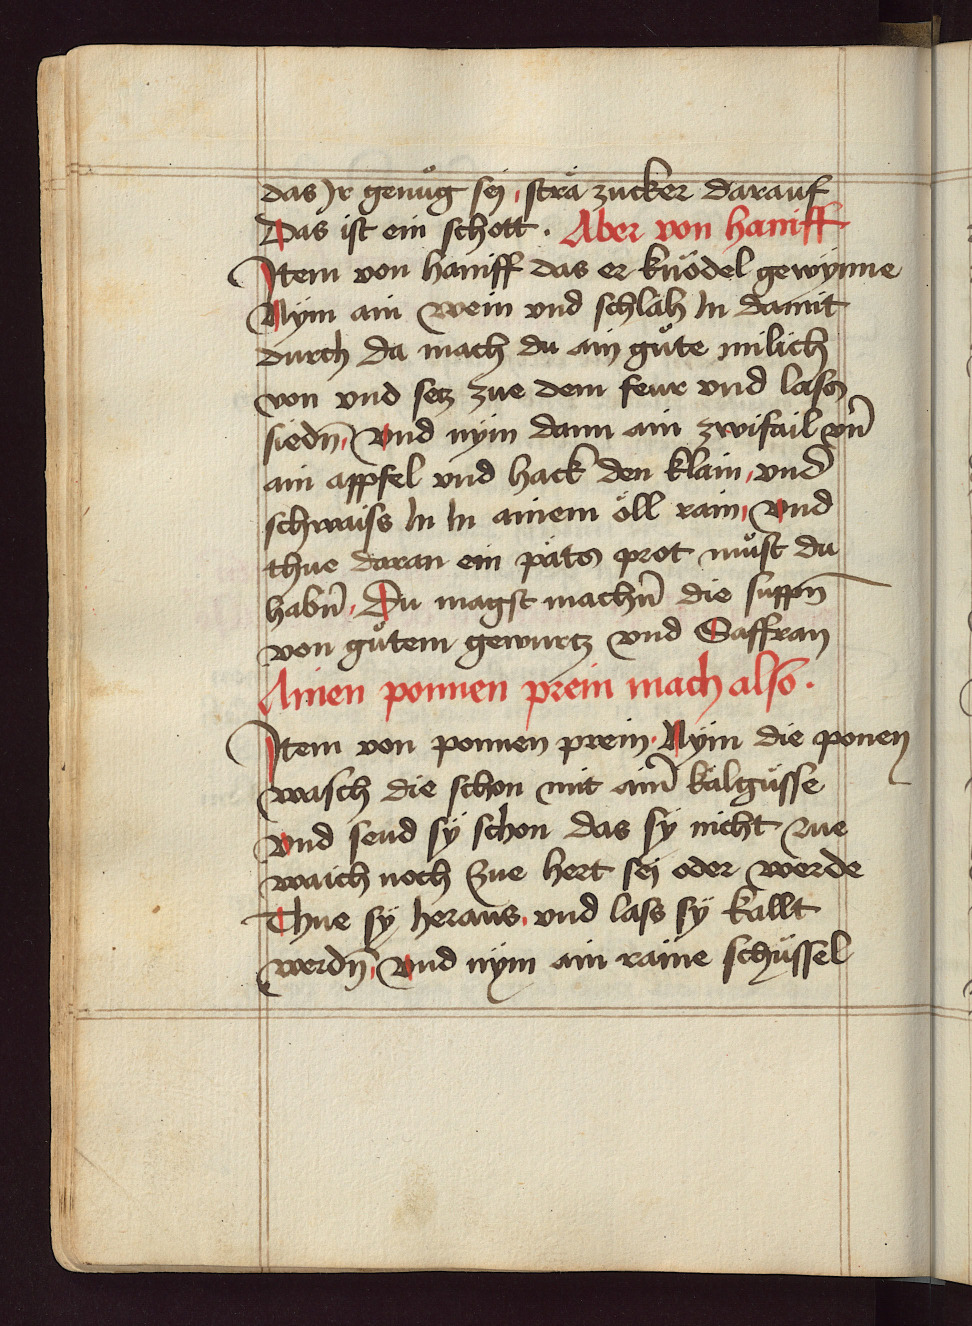 das Jr genuͦg sej , strä zucker darauf
Das ist ein schott . Aber von haniff
Jtem von haniff das er knödel gewynne
Nym ain wein vnd schlah In damit
durch da mach du ain guͦte milich
von vnd setz zue dem feur vnd lass
siedn̄ , Vnd nym dann ain zwifail vn̄
ain appfel vnd hack den klain , vnd
schwaiss In In ainem öll rain , Vnd
thue daran ein päts prot muͦst du
habn̄ , Du magst machn̄ die suppn̄
von guͦtem gewurtz vnd Saffran
Ainen ponnen prein mach also .
Jtem von ponnen prein . Nym die ponen
wasch die schon mit ain̄ kalgüsse
Vnd send sÿ schon das sÿ nicht zue
waich noch zue hert sej oder werde
Thue sÿ heraus , vnd lass sÿ kallt
werdn̄ , Vnd nym ain raine schüssel